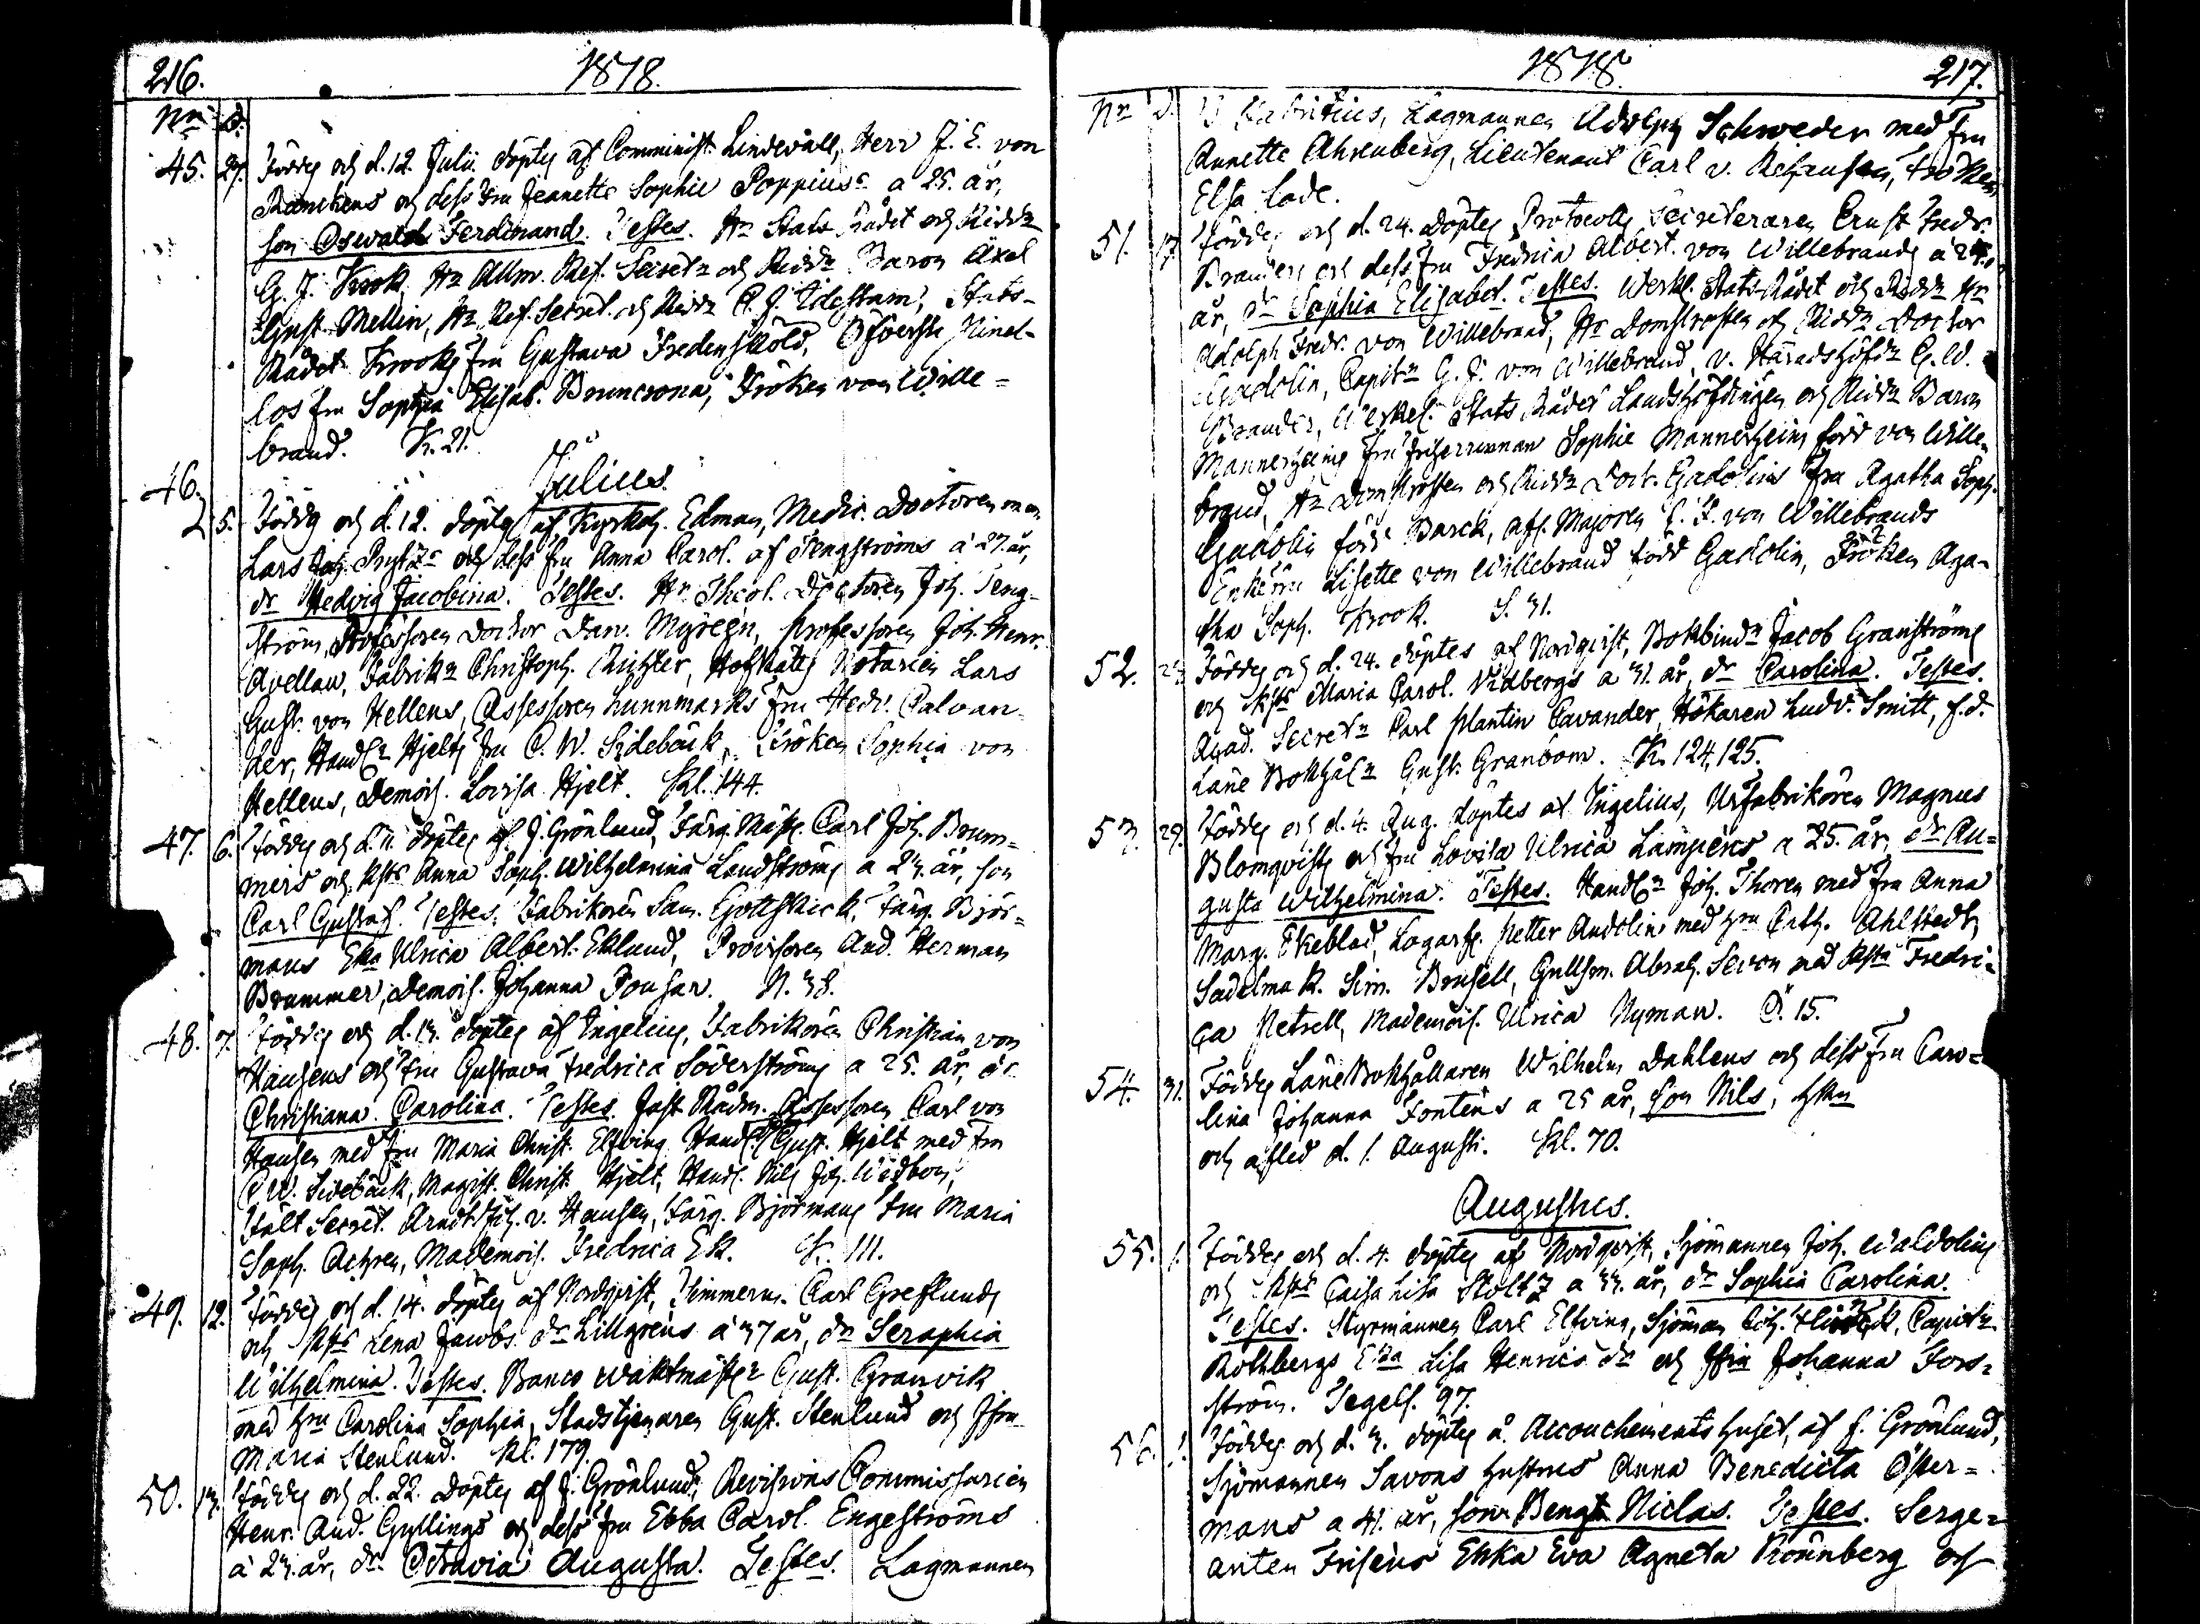 216.
1818.
Nr D.
45. 29. Föddes och d. 12. Julii döptes af Comminist. Lindevall, Herr J. E. von
och dess Fru Jeanette Sophie Poppiuss a 25. år,
son Oswald Ferdinand. Testes. Hr Stats Rådet och Riddr
G. J. Krook, Hr Allm. Ref. Secretr och Riddr Baron Axel
Gust. Mellin, Hr Ref. Secret. och Riddr C. J. Idestam, Stats-
Rådet Krooks Fru Gustava Fredenskiöld, Öfverste
Fru Sophia Elisab. Bruncrona, Fröken von Wille=
brand. K. 21.
Julius
46. 5. Föddes och d. 12. döptes af Kyrkoh. Edman, Medic. Doctoren
Lars Joh. Prytz och dess fru Anna Carol. af Tengströms a 27. år,
dr Hedvig Jacobina. Testes. Hr Theol. Doctoren Joh. Teng-
ström, Professoren Doctor Dan. Myreen, Professoren Joh. Henr.
Avellan, Fabrikr Christoph. Richter, Hofrätts Notarien Lars
Gust. von Hellens, Assessoren Lunnmarks Fru Hedv. Calvan-
der, Handlr Hjelts Fru C. W. Sidebäck, Fröken Sophia von
Hellens, Demois. Lovisa Hjelt. Kl. 144.
47. 6. Föddes och d. 11. döptes af J. Grönlund, Färg. Mäst. Carl Joh. Brum-
mers och Hsts Anna Soph. Wilhelmina Landströms a 23. år, son
Carl Gustaf. Testes. Fabrikören Sam. Gottskick, Färg. Björ=
mans Eka Ulrica Albert. Eklund, Provisoren And. Herman
Brummer, Demois. Johanna Fonsar. N. 38.
48. 7. Föddes och d. 13. döptes af Ingelius, Fabrikören Christian von
Hausens och Fru Gustava Fredrica Söderströms a 25. år, dr
Christiana Carolina. Testes. Just. Rådm. Assessoren Carl von
Hausen med Fru Maria Christ. Elfving, Handl. Gust. Hjelt med Fru
C. W. Sidebäck, Magist. Christ. Hjelt, Handl. Nils Joh. Widbom,
Fält Secret. Arndt Joh. v. Hausen, Färg. Björmans Fru Maria
Soph. Achren, Mademois. Fredrica Ek. K. 111.
49. 12. Föddes och d. 14. döptes af Nordqvist, Timmerm. Carl Greflunds
och Hsts Lena Jacobs dr Lillgrens a 37 år, dr Seraphia
Wilhelmina. Testes. Banco Waktmästr Gust. Granvik
med Hru Carolina Sophia, Stadstjenaren Gust. Stenlund och Jfru
Maria Stenlund. Kl. 179.
50. 13. Föddes och d. 22. döptes af J. Grönlund, Revisions Commissarien
Henr. And. Gyllings och dess Fru Ebba Carol. Engeströms
a 23. år, dr Octavia Augusta. Testes. Lagmannen
1818.
217.
Nr D.
Fabritius, Lagmannen Adolph Schweder med Fru
Annette Ahrenberg, Lieutenant Carl v. Rehausen, Fröken
Elsa Lode.
51. 17. Föddes och d. 24. döptes Protocolls Secreteraren Ernst Fredr.
Branders och dess Fru Fredrica Albert. von Willebrands a 24.
år, dr Sophia Elisabet. Testes. Werkl. Stats Rådet och Riddr Hr
Adolph Fredr. von Willebrand, Hr Domprosten och Riddr Doctor
Gadolin, Capitn G. J. von Willebrand, v. Häradshöfdr C. W.
Brander, Werkel. Stats Rådet Landshöfdingen och Riddr Baron
Mannerheims Fru Friherrinnan Sophie Mannerheim född von Wille-
brand, Hr Domprosten och Riddr Doct. Gadolins Fru Agatha Soph.
Gadolin född Barck, afl. Majoren E. F. von Willebrands
Enkefru Lisette von Willebrand född Gadolin, Fröken Aga-
tha Soph. Krook. S. 31.
52. 23. Föddes och d. 24. döptes af Nordqvist, Bokbindr Jacob Granströms
och Hsts Maria Carol. Vidbergs a 31. år, dr Carolina. Testes.
Acad. Secretr Carl Plantin Cavander, Hökaren Ludv. Smitt, f. d.
Läne Bokhålr Gust. Granbom. K. 124, 125.
53. 29. Föddes och d. 4. Aug. döptes af Ingelius, Urfabrikören Magnus
Blomqvists och Fru Lovisa Ulrica Lampens a 25. år, dr Au=
gusta Wilhelmina. Testes. Handlr Joh. Thoren med Fru Anna
Marg. Ekeblad, Logarf. Petter Andelin med Hru Cath. Ahlstedt,
Sadelmak. Sim. Brusell, Gullsm. Abrah. Sevon med Hstr Fredri=
ca Petrell, Mademois. Ulrica Nyman. Ö. 15.
54. 31. Föddes Läne Bokhållaren Wilhelm Dahlens och dess Fru Caro=
lina Johanna Fontens a 25 år, son Nils,
och afled d. 1. Augusti. Kl. 70.
Augustus.
55. 1. Föddes och d. 4. döptes af Nordqvist, Sjömannen Joh. Waldolins
och Hsts Caisa Lisa Stoltz a 33. år, dr Sophia Carolina.
Testes. Styrmannen Carl Elfving, Sjöman Joh. Capitn
Rothbergs Eka Lisa Henrics dr och Jfrn Johanna Fors=
ström. Segelf. 97.
56. 1. Föddes och d. 3. döptes å Accouchements huset, af J. Grönlund,
Sjömannen Savons hustrus Anna Benedicta Öster=
mans a 41. år, son Bengt Niclas. Testes. Serge=
anten Frisens Enka Eva Agneta Rönnberg och